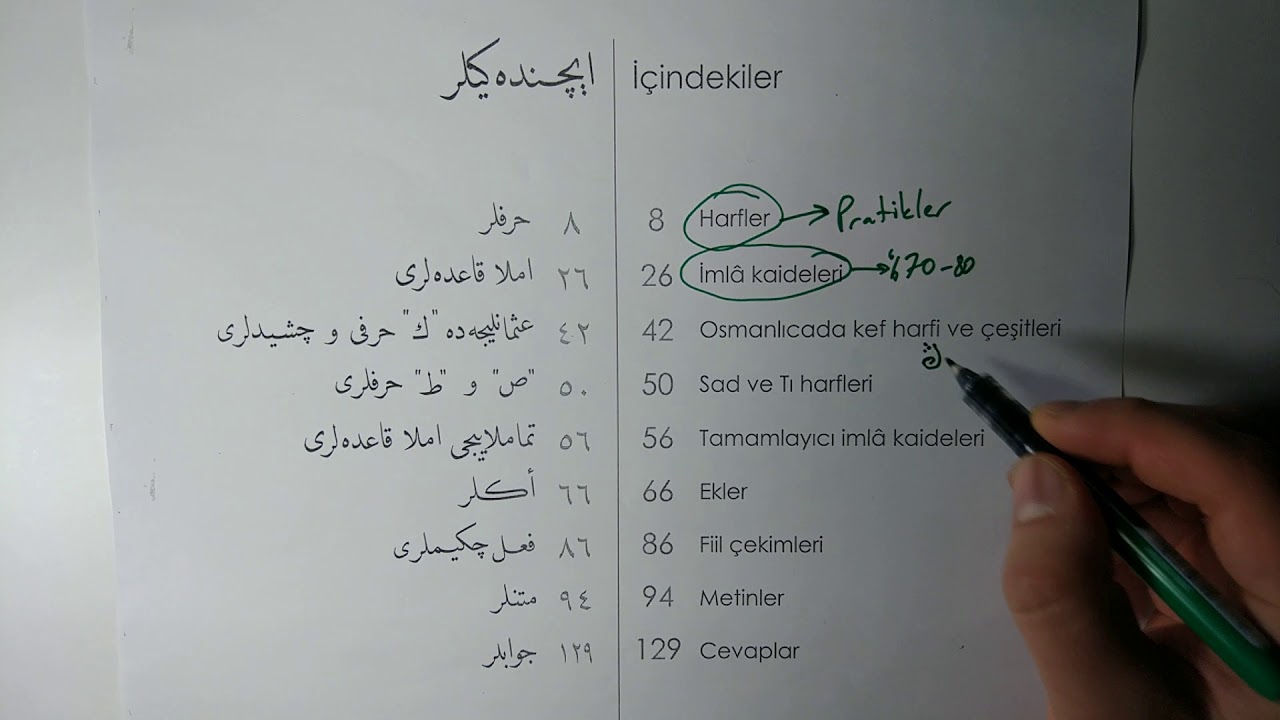 ایچنده‌کیلر İçindekiler
حرفلر ٨ 8 Harfler → Pratikler
املا قاعده‌لری ٢٦ 26 İmlâ kaideleri → %70-80
عثمانلیجه‌ده "ك" حرفی و چشیدلری ٤٢ 42 Osmanlıcada kef harfi ve çeşitleri
ڭ
"ص" و "ط" حرفلری ٥٠ 50 Sad ve Tı harfleri
تماملاییجی املا قاعده‌لری ٥٦ 56 Tamamlayıcı imlâ kaideleri
أكلر ٦٦ 66 Ekler
فعل چكیملری ٨٦ 86 Fiil çekimleri
متنلر ٩٤ 94 Metinler
جوابلر ١٢٩ 129 Cevaplar